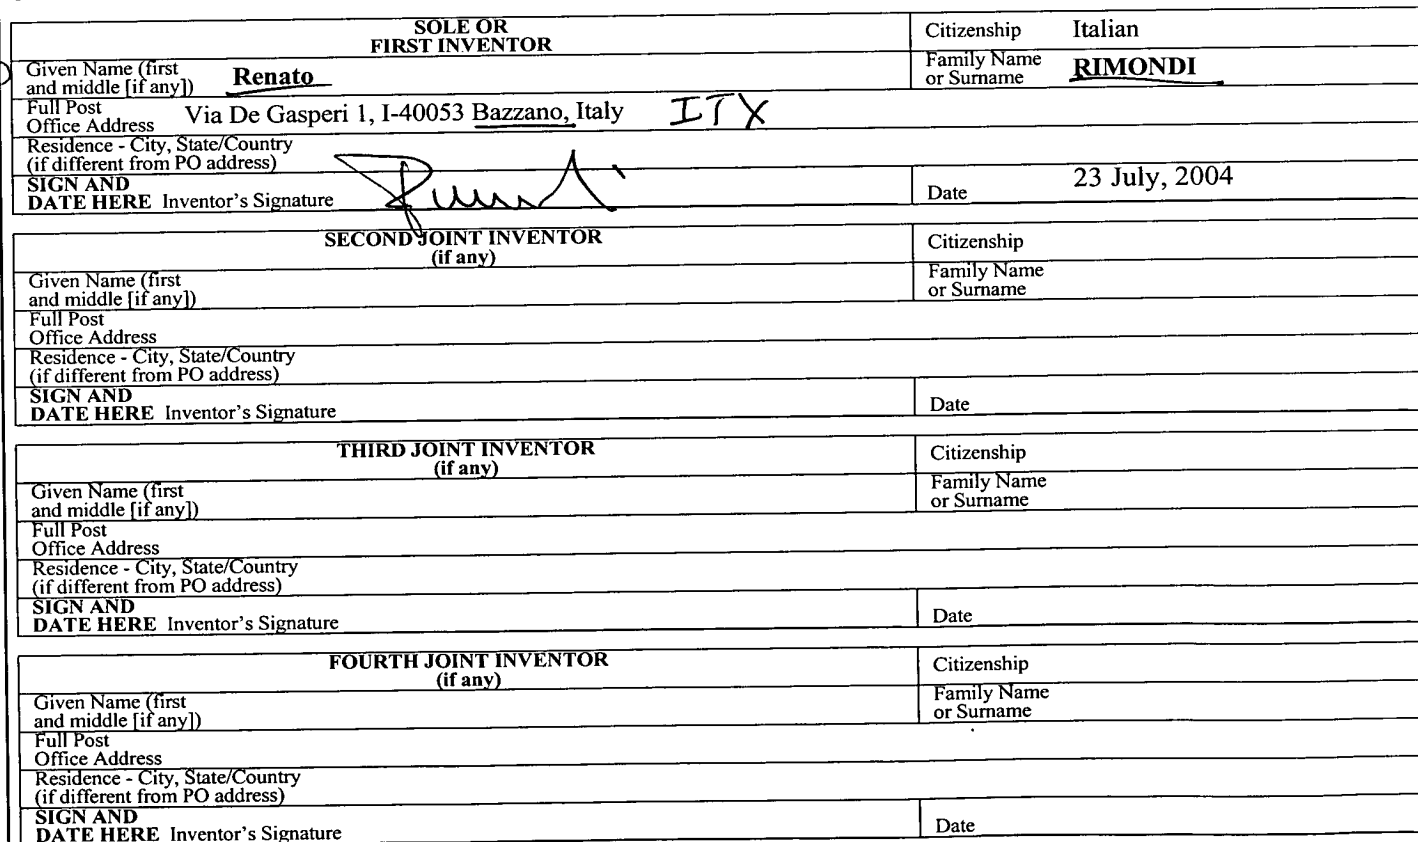 SOLE OR
FIRST INVENTOR
Citizenship Italian
Given Name (first
and middle [if any]) Renato
Family Name
or Surname RIMONDI
Full Post
Office Address Via De Gasperi 1, I-40053 Bazzano, Italy ITX
Residence - City, State/Country
(if different from PO address)
SIGN AND
DATE HERE Inventor's Signature
Date 23 July, 2004
SECOND JOINT INVENTOR
(if any)
Citizenship
Given Name (first
and middle [if any])
Family Name
or Surname
Full Post
Office Address
Residence - City, State/Country
(if different from PO address)
SIGN AND
DATE HERE Inventor's Signature
Date
THIRD JOINT INVENTOR
(if any)
Citizenship
Given Name (first
and middle [if any])
Family Name
or Surname
Full Post
Office Address
Residence - City, State/Country
(if different from PO address)
SIGN AND
DATE HERE Inventor's Signature
Date
FOURTH JOINT INVENTOR
(if any)
Citizenship
Given Name (first
and middle [if any])
Family Name
or Surname
Full Post
Office Address
Residence - City, State/Country
(if different from PO address)
SIGN AND
DATE HERE Inventor's Signature
Date